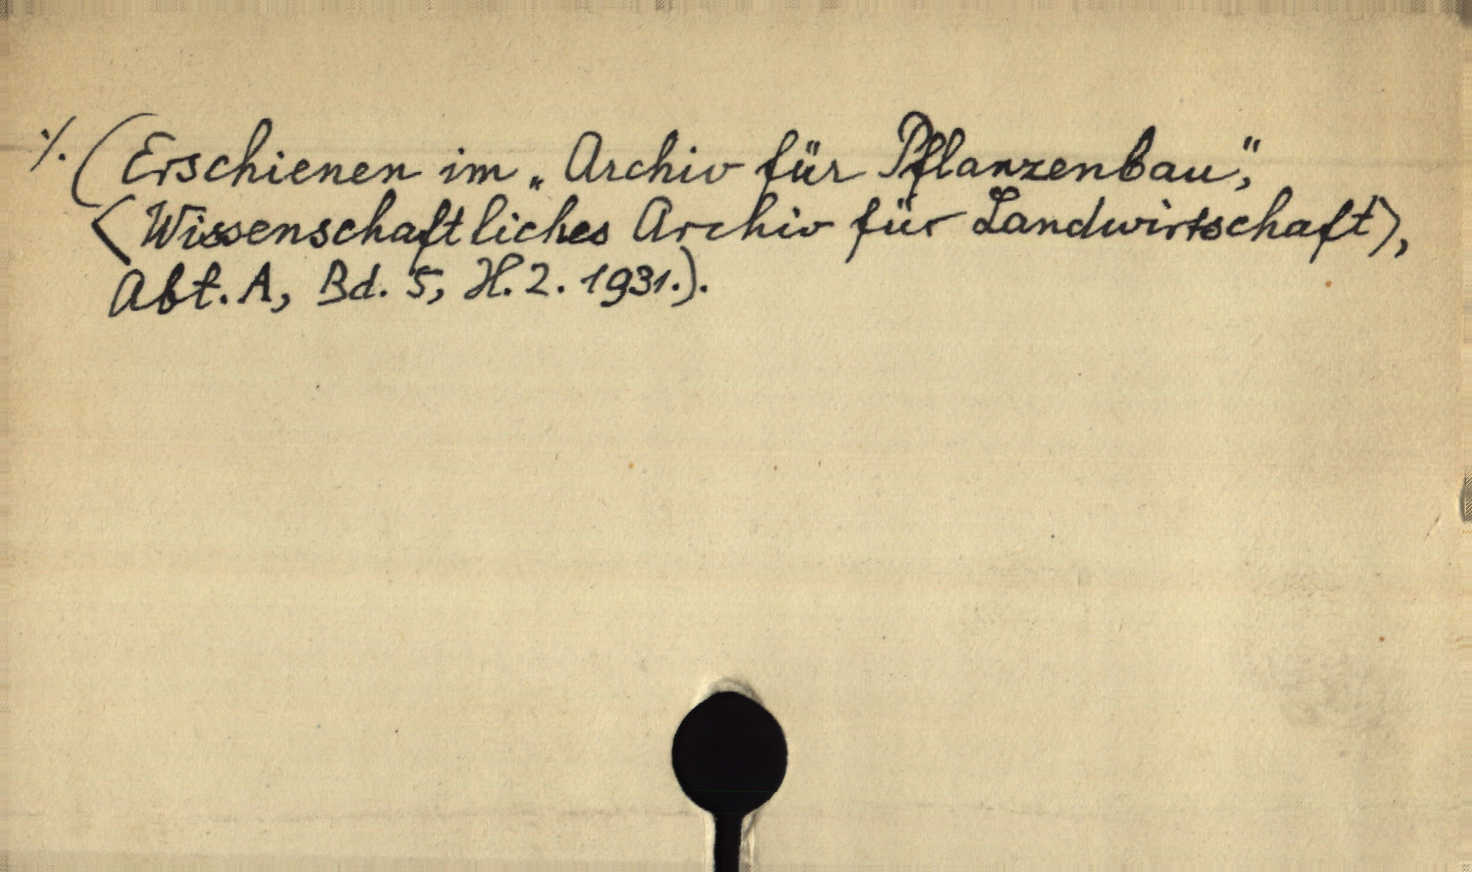 ./. (Erschienen im „Archiv für Pflanzenbau",
<Wissenschaftliches Archiv für Landwirtschaft>,
Abt. A, Bd. 5, H. 2. 1931.).